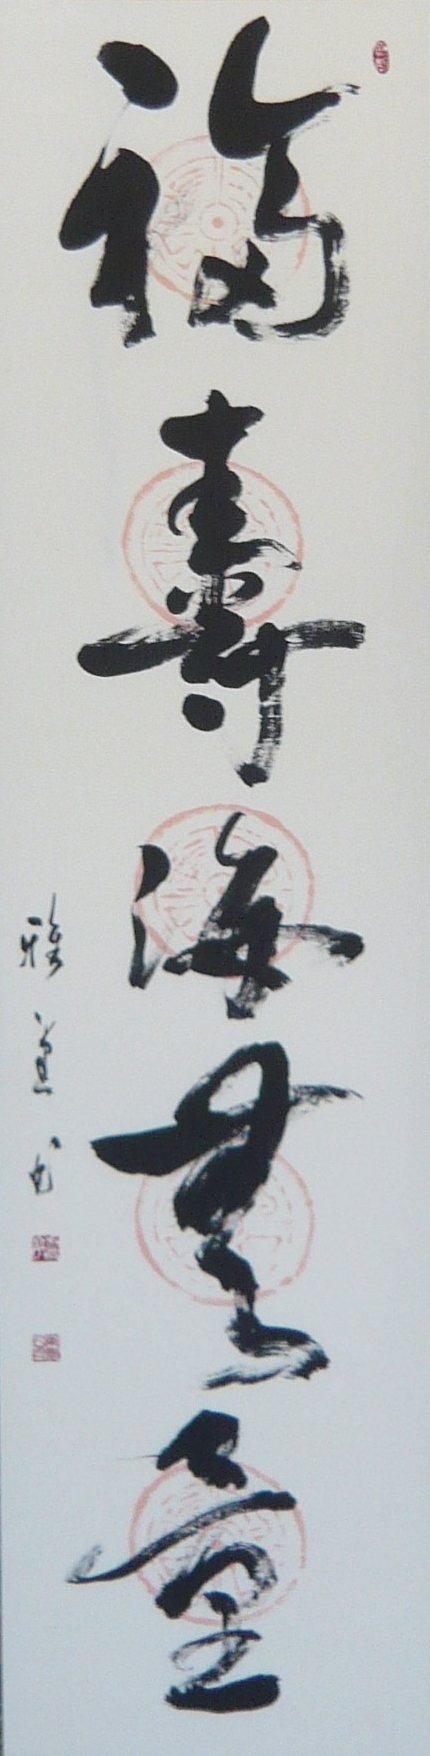 福壽海無量
雅